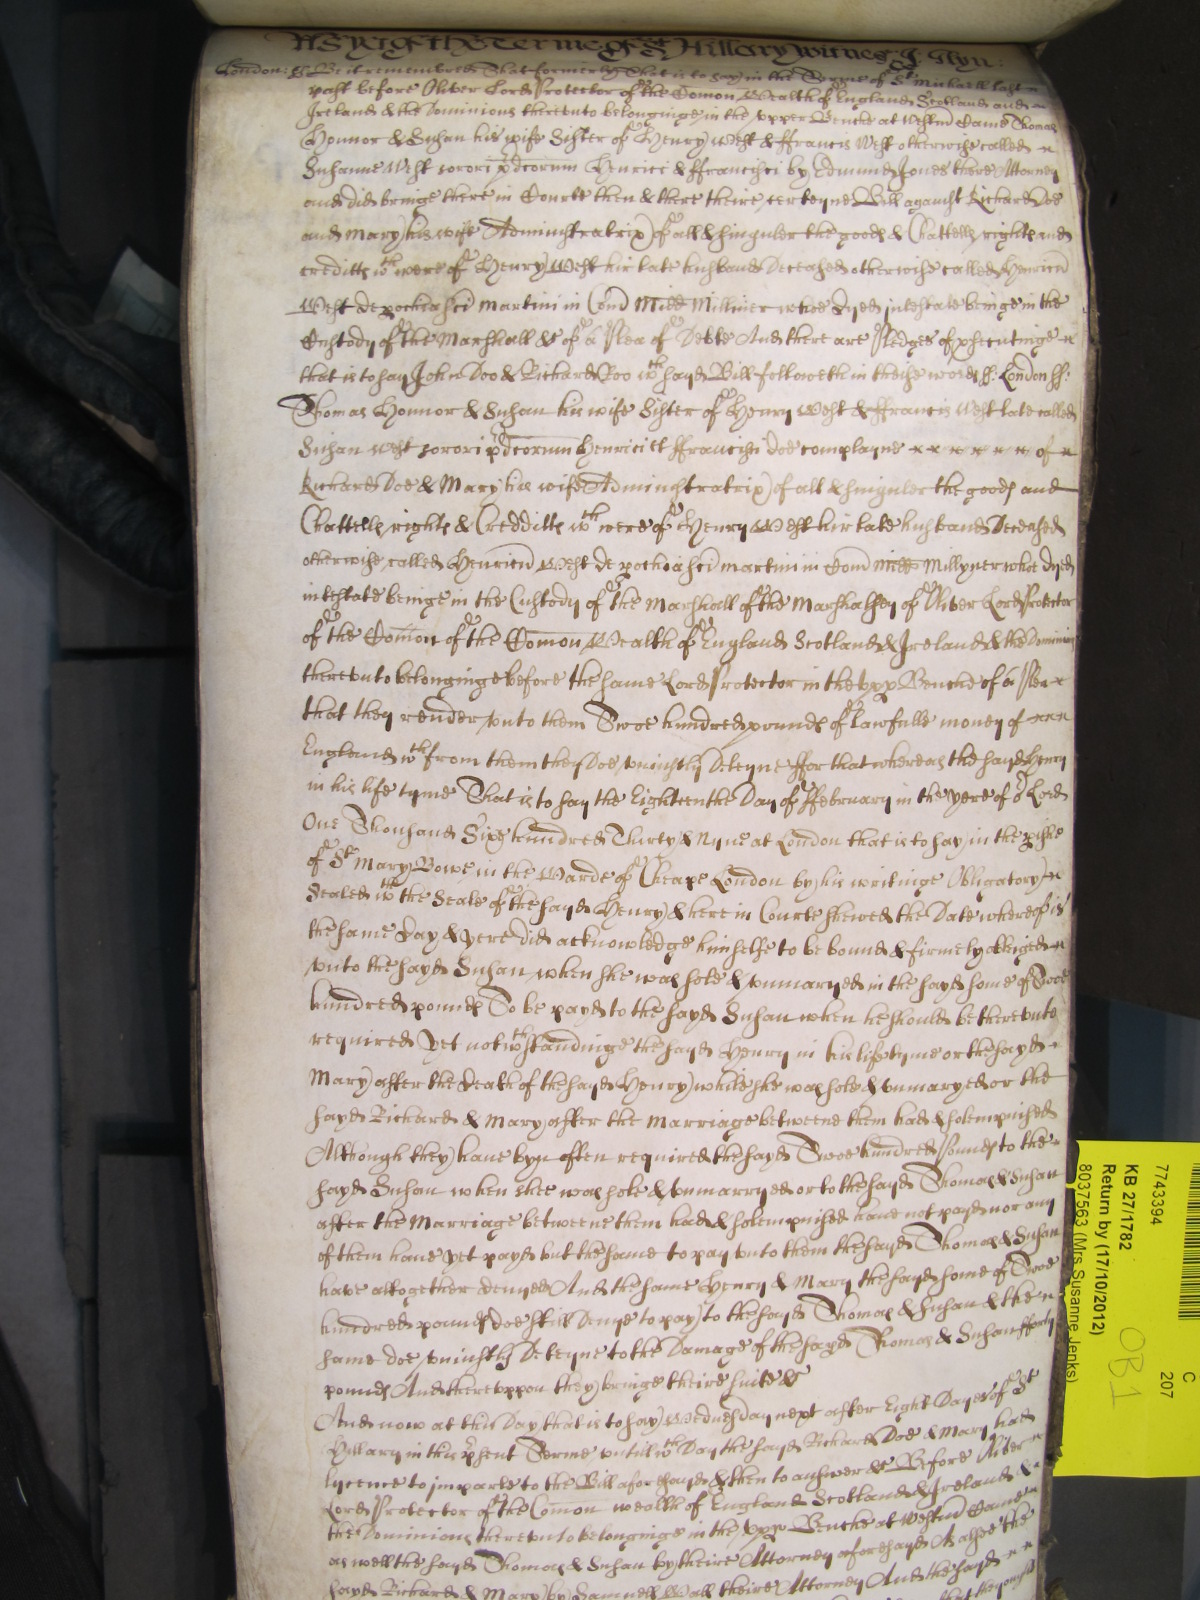 As yet of the Terme of St Hillary witnes J. Glyn:
London: ss Be it remembred That formerly That is to say in the Terme of St Michaell last
past before Oliver Lord Protector of the Comon Wealth of England Scotland and
Ireland & the Dominions therevnto belonginge in the vpper Bench at Westm Came Thomas
Honnor & Susan his wife Sister of Henry West & ffrancis West otherwise called
Susanne West sorori pdcorum Henrici & ffrancisci by Edmund Jones there Attorney
and did bringe there in Courte then & there theire certeyne Bill against Richard Doe
and Mary his wife Administratrix of all & singuler the goods & Chattells rights and
creditts wch were of Henry West hir late husband Deceased otherwise called Henricu
West de pochia sci Martini in Com Midd Milliner whoe dyed intestate beinge in the
Custody of the Marshall &c of a Plea of Debte And there are Pledges of psecutinge
that is to say John Doo & Richard Roo wch sayd Bill followeth in theise words ss: London ss:
Thomas Honnor & Susan his wife Sister of Henry West & ffrancis West late called
Susan West sorori pdcorum Henrici et ffrancisci doe complayne of
Richard Doe & Mary his wife Administratrix of all & singuler the goods and
Chattells rights & Credditts wch were of Henry West hir late husband Deceased
otherwise called Henricu West de pochia sci Martini in Com Midd Millyner who dyed
intestate beinge in the Custody of the Marshall of the Marshalsey of Oliver Lord Protector
of the Comon of the Comon Wealth of England Scotland & Ireland & the Dominions
therevnto belonginge before the same Lord Protector in the vpp Bench of a Plea
that they render vnto them Twoe hundred pounds of lawfull money of
England wch from them they Doe vniustly Deteyne ffor that whereas the sayd Henry
in his life tyme That is to say the Eighteenthe Day of ffebruary in the yere of or Lord
One Thousand Sixe hundred Thirty & Nyne at London that is to say in the pishe
of St Mary Bowe in the Warde of Cheape London by his writinge Obligatory
Sealed wth the Seale of the sayd Henry & here in Courte shewed the Date whereof is
the same Day & yere did acknowledge himselfe to be bound & firmely obliged
vnto the sayd Susan when she was sole & vnmaryed in the sayd some of Twoe
hundred pounds To be payd to the sayd Susan when he should be therevnto
required Yet notwthstandinge the sayd Henry in his life tyme or the sayd
Mary after the death of the sayd Henry while she was sole & vnmaryed or the
sayd Richard & Mary after the Marriage betweene them had & solempnised
Although they haue byn often required the sayd Twoe hundred Pounds to the
sayd Susan when shee was sole & vnmarryed or to the sayd Thomas & Susan
after the Marriage betweene them had & solempnised haue not payd nor any
of them haue yet payd but the same to pay vnto them the sayd Thomas & Susan
haue altogether denyed And the same Henry & Mary the sayd some of Twoe
hundred pounds doe still Denye to pay to the sayd Thomas & Susan & the
same doe vniustly Deteyne to the Damage of the sayd Thomas & Susan fforty
pounds And therevppon they bringe theire suite &c
And now at this Day that is to say Wednesday next after Eight Dayes of St
Hillary in this psent Terme vntill wch Day the sayd Richard Doe & Mary had
lycence to imparle to the Bill aforesayd & then to answer &c Before Oliver
Lord Protector of the Comon wealth of England Scotland & Ireland &
the Dominions therevnto belonginge in the vpp Benche at Westm Came
as well the sayd Thomas & Susan by theire Attorney aforesayd As alsoe the
sayd Richard & Mary by Samuell Wall theire Attorney And the sayd
C
207
7743394
KB 27/1782
Return by (17/10/2012)
8037563 (Mrs Susanne Jenks)
OB1